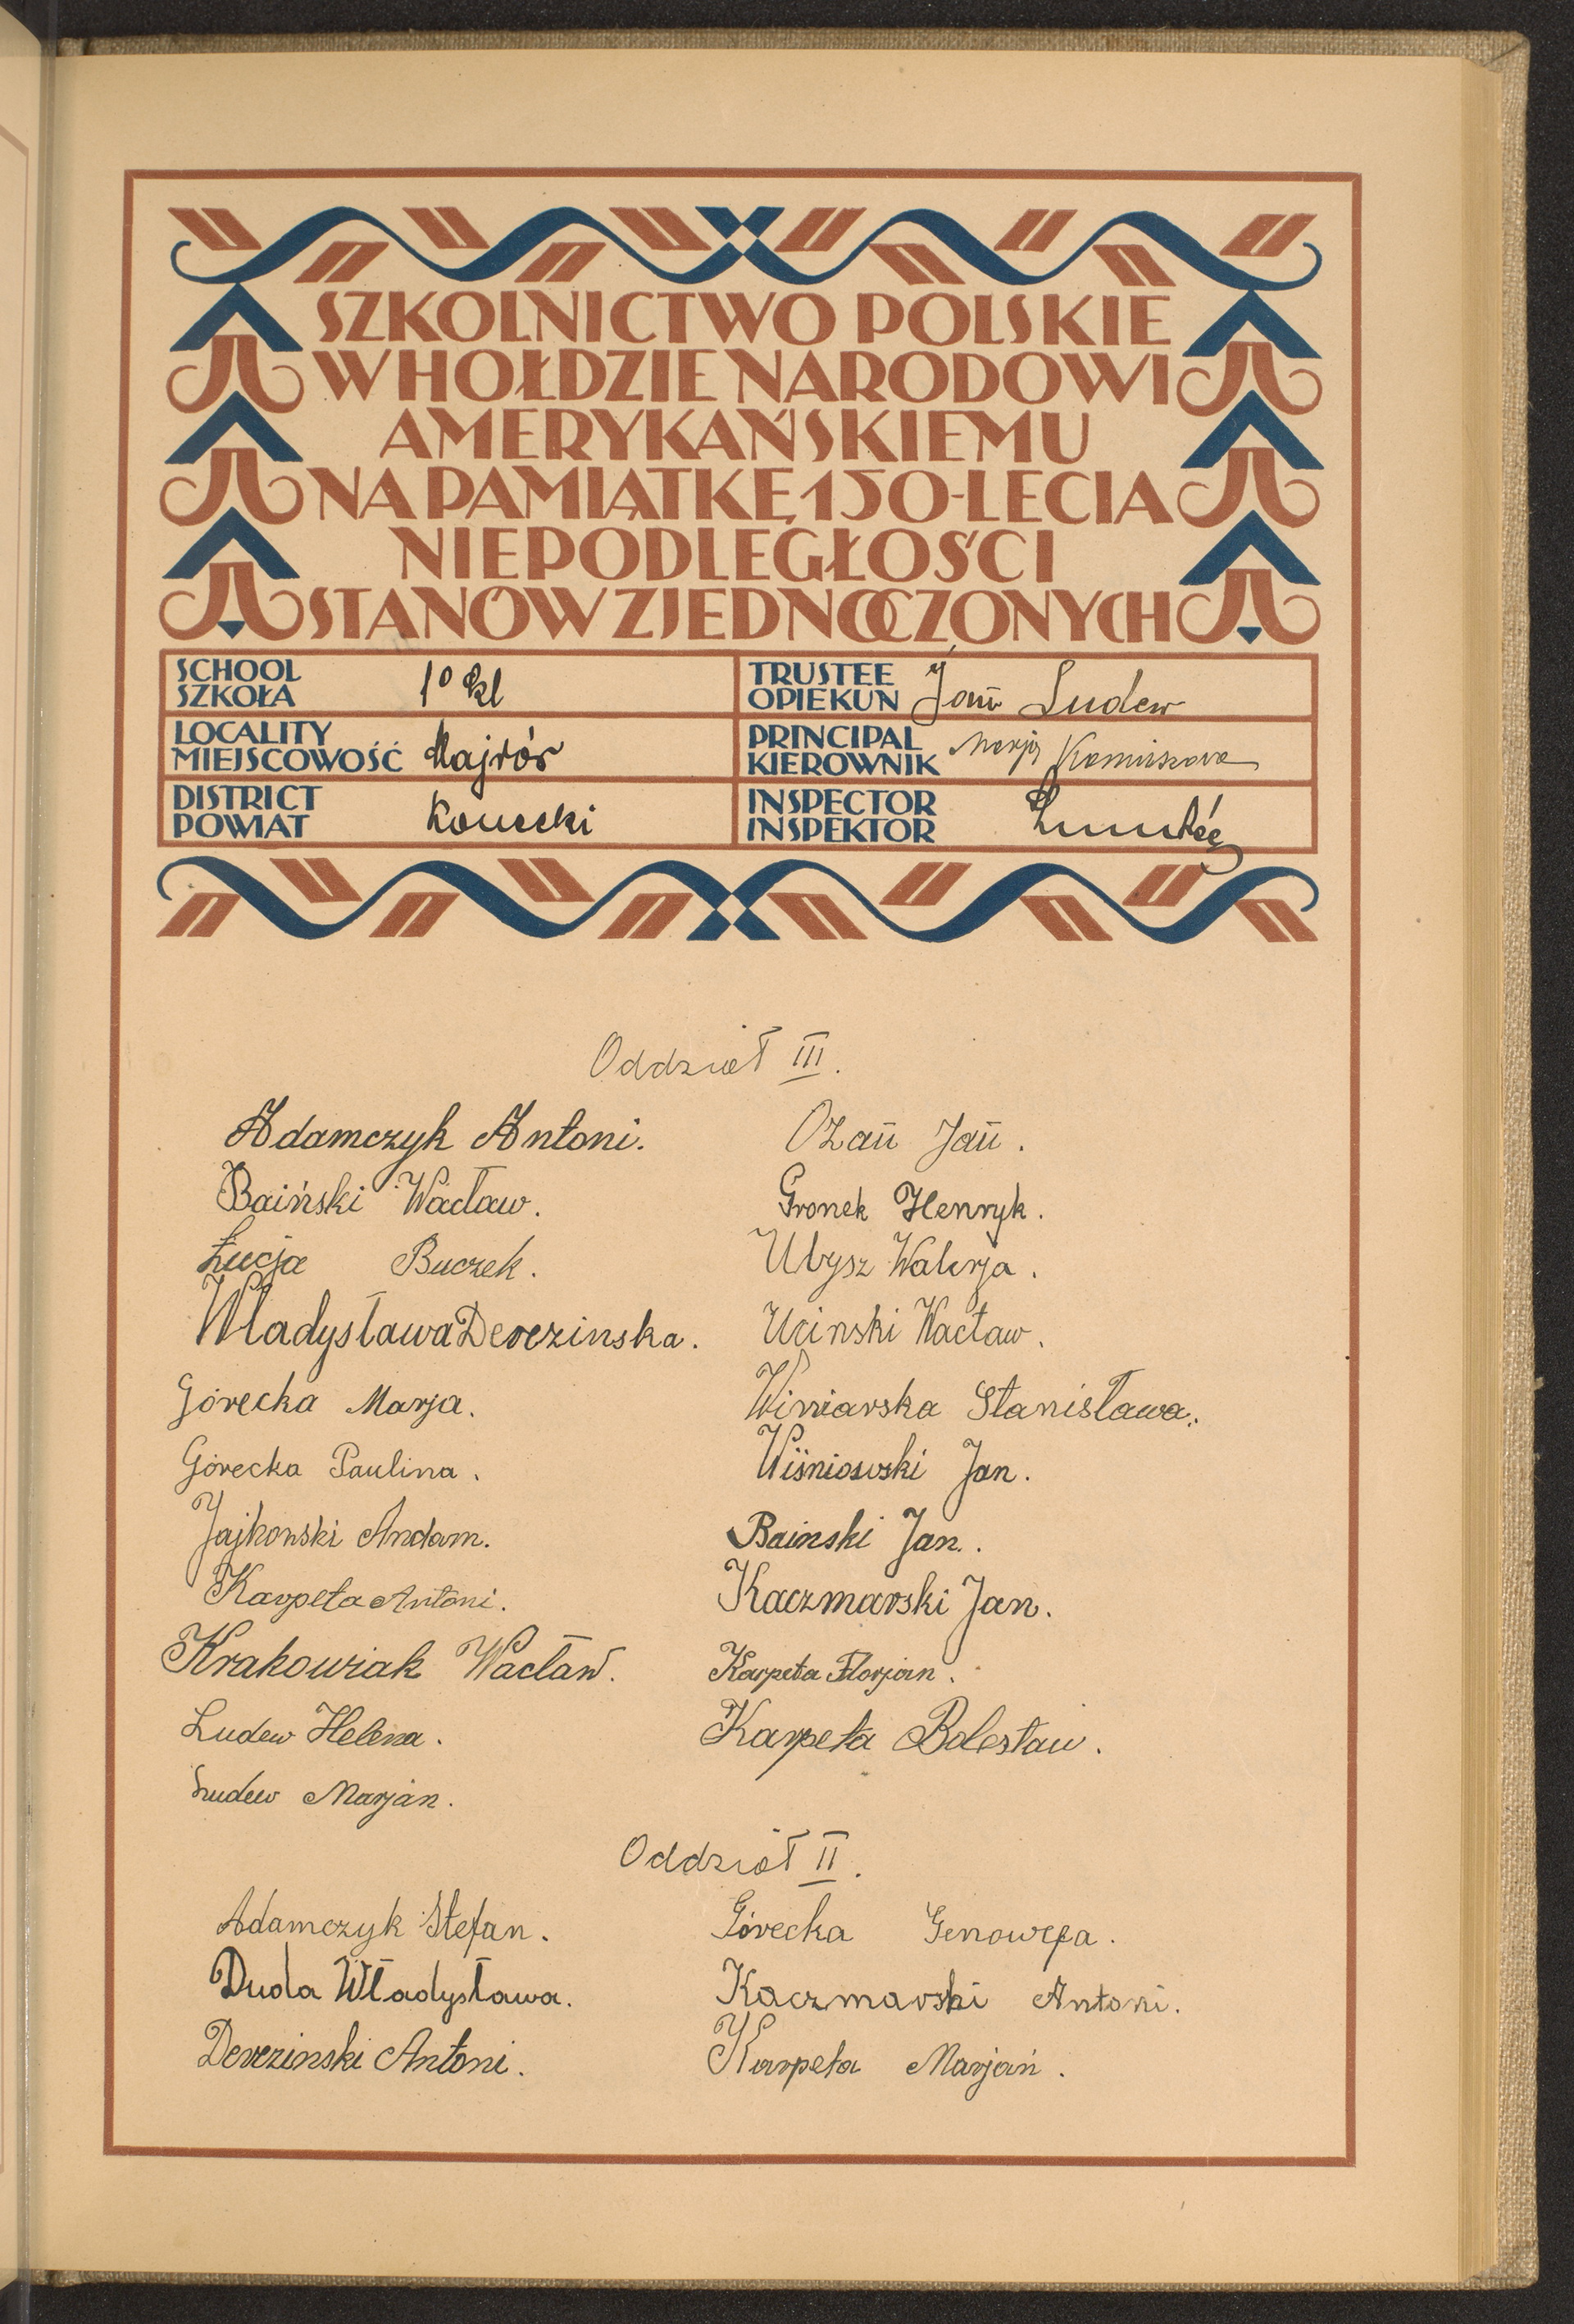 SZKOLNICTWO POLSKIE
W HOŁDZIE NARODOWI
AMERYKAŃSKIEMU
NA PAMIĄTKĘ 150-LECIA
NIEPODLEGŁOŚCI
STANÓW ZJEDNOCZONYCH
SCHOOL
SZKOŁA 1º kl
TRUSTEE
OPIEKUN Jan Ludew
LOCALITY
MIEJSCOWOŚĆ Majdów
PRINCIPAL
KIEROWNIK Marja
DISTRICT
POWIAT Konecki
INSPECTOR
INSPEKTOR
Oddział III.
Adamczyk Antoni.
Baiński Wacław.
Łucja Buczek.
Władysława Derezinska.
Górecka Marja.
Górecka Paulina.
Jajkowski Andam.
Karpeta Antoni.
Krakowiak Wacław.
Ludew Helena.
Ludew Marjan.
Ożań Jań.
Gronek Henryk.
Ubysz Walerja.
Uciński Wacław.
Winiarska Stanisława.
Wiśniowski Jan.
Bainski Jan.
Kaczmarski Jan.
Karpeta Florjan.
Karpeta Bolesław.
Oddział II.
Adamczyk Stefan.
Duda Władysława.
Derezinski Antoni.
Górecka Genowefa.
Kaczmarski Antoni.
Karpeta Marjań.